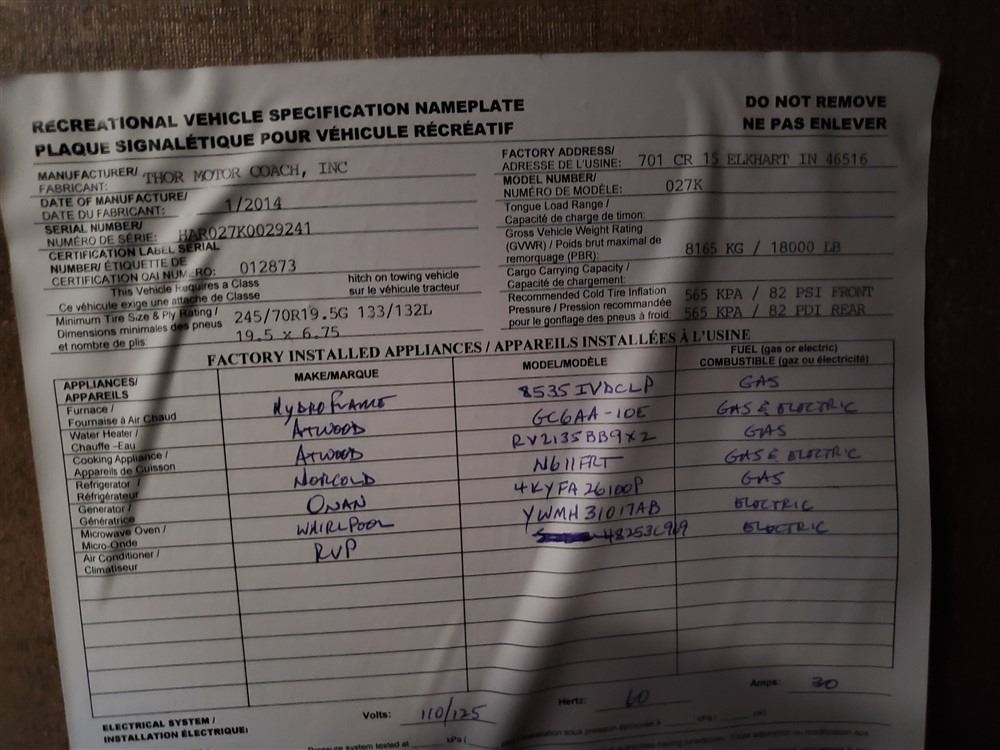 RECREATIONAL VEHICLE SPECIFICATION NAMEPLATE
PLAQUE SIGNALÉTIQUE POUR VÉHICULE RÉCRÉATIF
DO NOT REMOVE
NE PAS ENLEVER
MANUFACTURER/
FABRICANT: THOR MOTOR COACH, INC
DATE OF MANUFACTURE/
DATE DU FABRICANT: 1/2014
SERIAL NUMBER/
NUMÉRO DE SÉRIE: HAR027K0029241
CERTIFICATION LABEL SERIAL
NUMBER/ ÉTIQUETTE DE
CERTIFICATION QAI NUMÉRO: 012873
This Vehicle Requires a Class hitch on towing vehicle
Ce véhicule exige une attache de Classe sur le véhicule tracteur
Minimum Tire Size & Ply Rating / 245/70R19.5G 133/132L
Dimensions minimales des pneus
et nombre de plis: 19.5 x 6.75
FACTORY ADDRESS/
ADRESSE DE L'USINE: 701 CR 15 ELKHART IN 46516
MODEL NUMBER/
NUMÉRO DE MODÈLE: 027K
Tongue Load Range /
Capacité de charge de timon:
Gross Vehicle Weight Rating
(GVWR) / Poids brut maximal de
remorquage (PBR): 8165 KG / 18000 LB
Cargo Carrying Capacity /
Capacité de chargement:
Recommended Cold Tire Inflation 565 KPA / 82 PSI FRONT
Pressure / Pression recommandée
pour le gonflage des pneus à froid: 565 KPA / 82 PDI REAR
FACTORY INSTALLED APPLIANCES / APPAREILS INSTALLÉES À L'USINE
APPLIANCES/
APPAREILS
MAKE/MARQUE
MODEL/MODÈLE
FUEL (gas or electric)
COMBUSTIBLE (gaz ou électricité)
Furnace /
Fournaise à Air Chaud
HYDRO FLAME 8535 IVDCLP GAS
Water Heater /
Chauffe -Eau
ATWOOD GC6AA-10E GAS & ELECTRIC
Cooking Appliance /
Appareils de Cuisson
ATWOOD RV2135BB9X2 GAS
Refrigerator /
Réfrigérateur
NORCOLD N611FRT GAS & ELECTRIC
Generator /
Génératrice
ONAN 4KYFA26100P GAS
Microwave Oven /
Micro-Onde
WHIRLPOOL YWMH31017AB ELECTRIC
Air Conditioner /
Climatiseur
RVP 48253C969 ELECTRIC
ELECTRICAL SYSTEM /
INSTALLATION ÉLECTRIQUE:
Volts: 110/125 Hertz: 60 Amps: 30